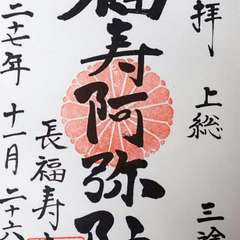 拝 上総 三途
福寿阿弥陀
長福寿寺
二十七年 十一月 二十六